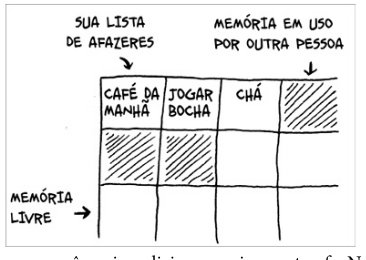 SUA LISTA
DE AFAZERES
MEMÓRIA EM USO
POR OUTRA PESSOA
CAFÉ DA
MANHÃ
JOGAR
BOCHA
CHÁ
MEMÓRIA
LIVRE